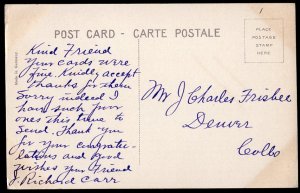 POST CARD - CARTE POSTALE
PLACE
POSTAGE
STAMP
HERE
Kind Friend
Your cards were
fine. Kindly accept
thanks for them
Sorry indeed I
have such poor
ones this time to
Send. Thank you
for your congratu-
lations and good
wishes your Friend
J Richard Carr
Mr J Charles Frisbee
Denver
Collo